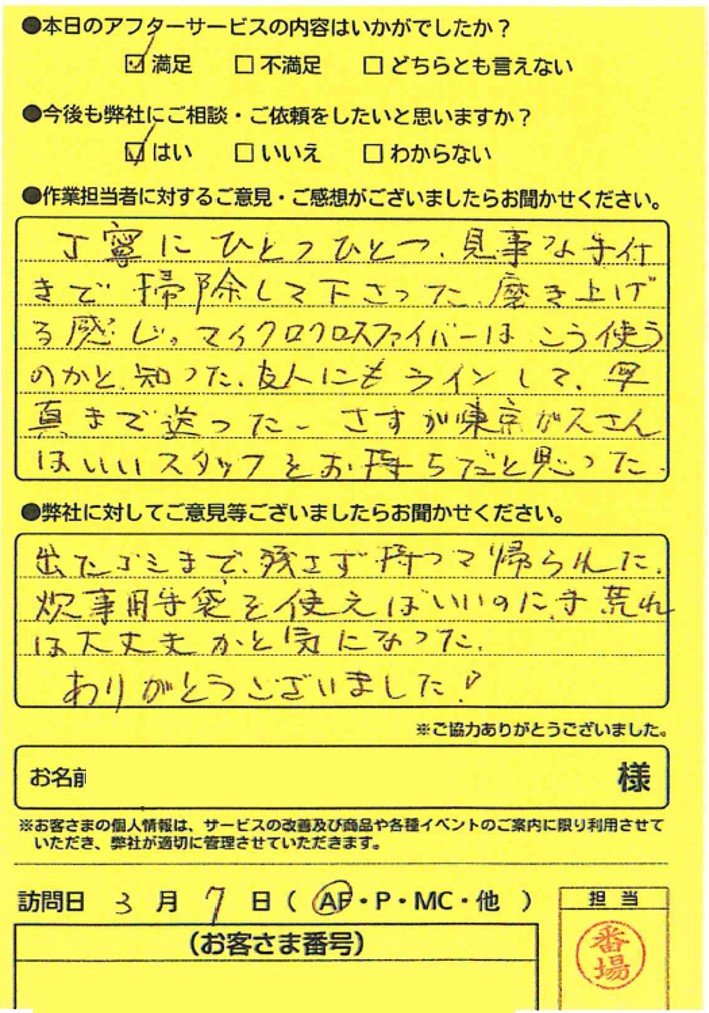 ●本日のアフターサービスの内容はいかがでしたか？
☑満足 □不満足 □どちらとも言えない
●今後も弊社にご相談・ご依頼をしたいと思いますか？
☑はい □いいえ □わからない
●作業担当者に対するご意見・ご感想がございましたらお聞かせください。
丁寧にひとつひとつ、見事な手付
きで掃除して下さった、磨き上げ
る感じ。マイクロクロスファイバーは こう使う
のかと、知った、友人にもラインして、写
真まで送った、さすが東京ガスさん
はいいスタッフをお持ちだと思った、
●弊社に対してご意見等ございましたらお聞かせください。
出たゴミまで、残さず持って帰られた、
炊事用手袋を使えばいいのに、手荒れ
は大丈夫かと気になった、
ありがとうございました！
※ご協力ありがとうございました。
お名前 様
※お客さまの個人情報は、サービスの改善及び商品や各種イベントのご案内に限り利用させて
いただき、弊社が適切に管理させていただきます。
訪問日 3 月 7 日 （ AF・P・MC・他 ）
担当
（お客さま番号）
番場